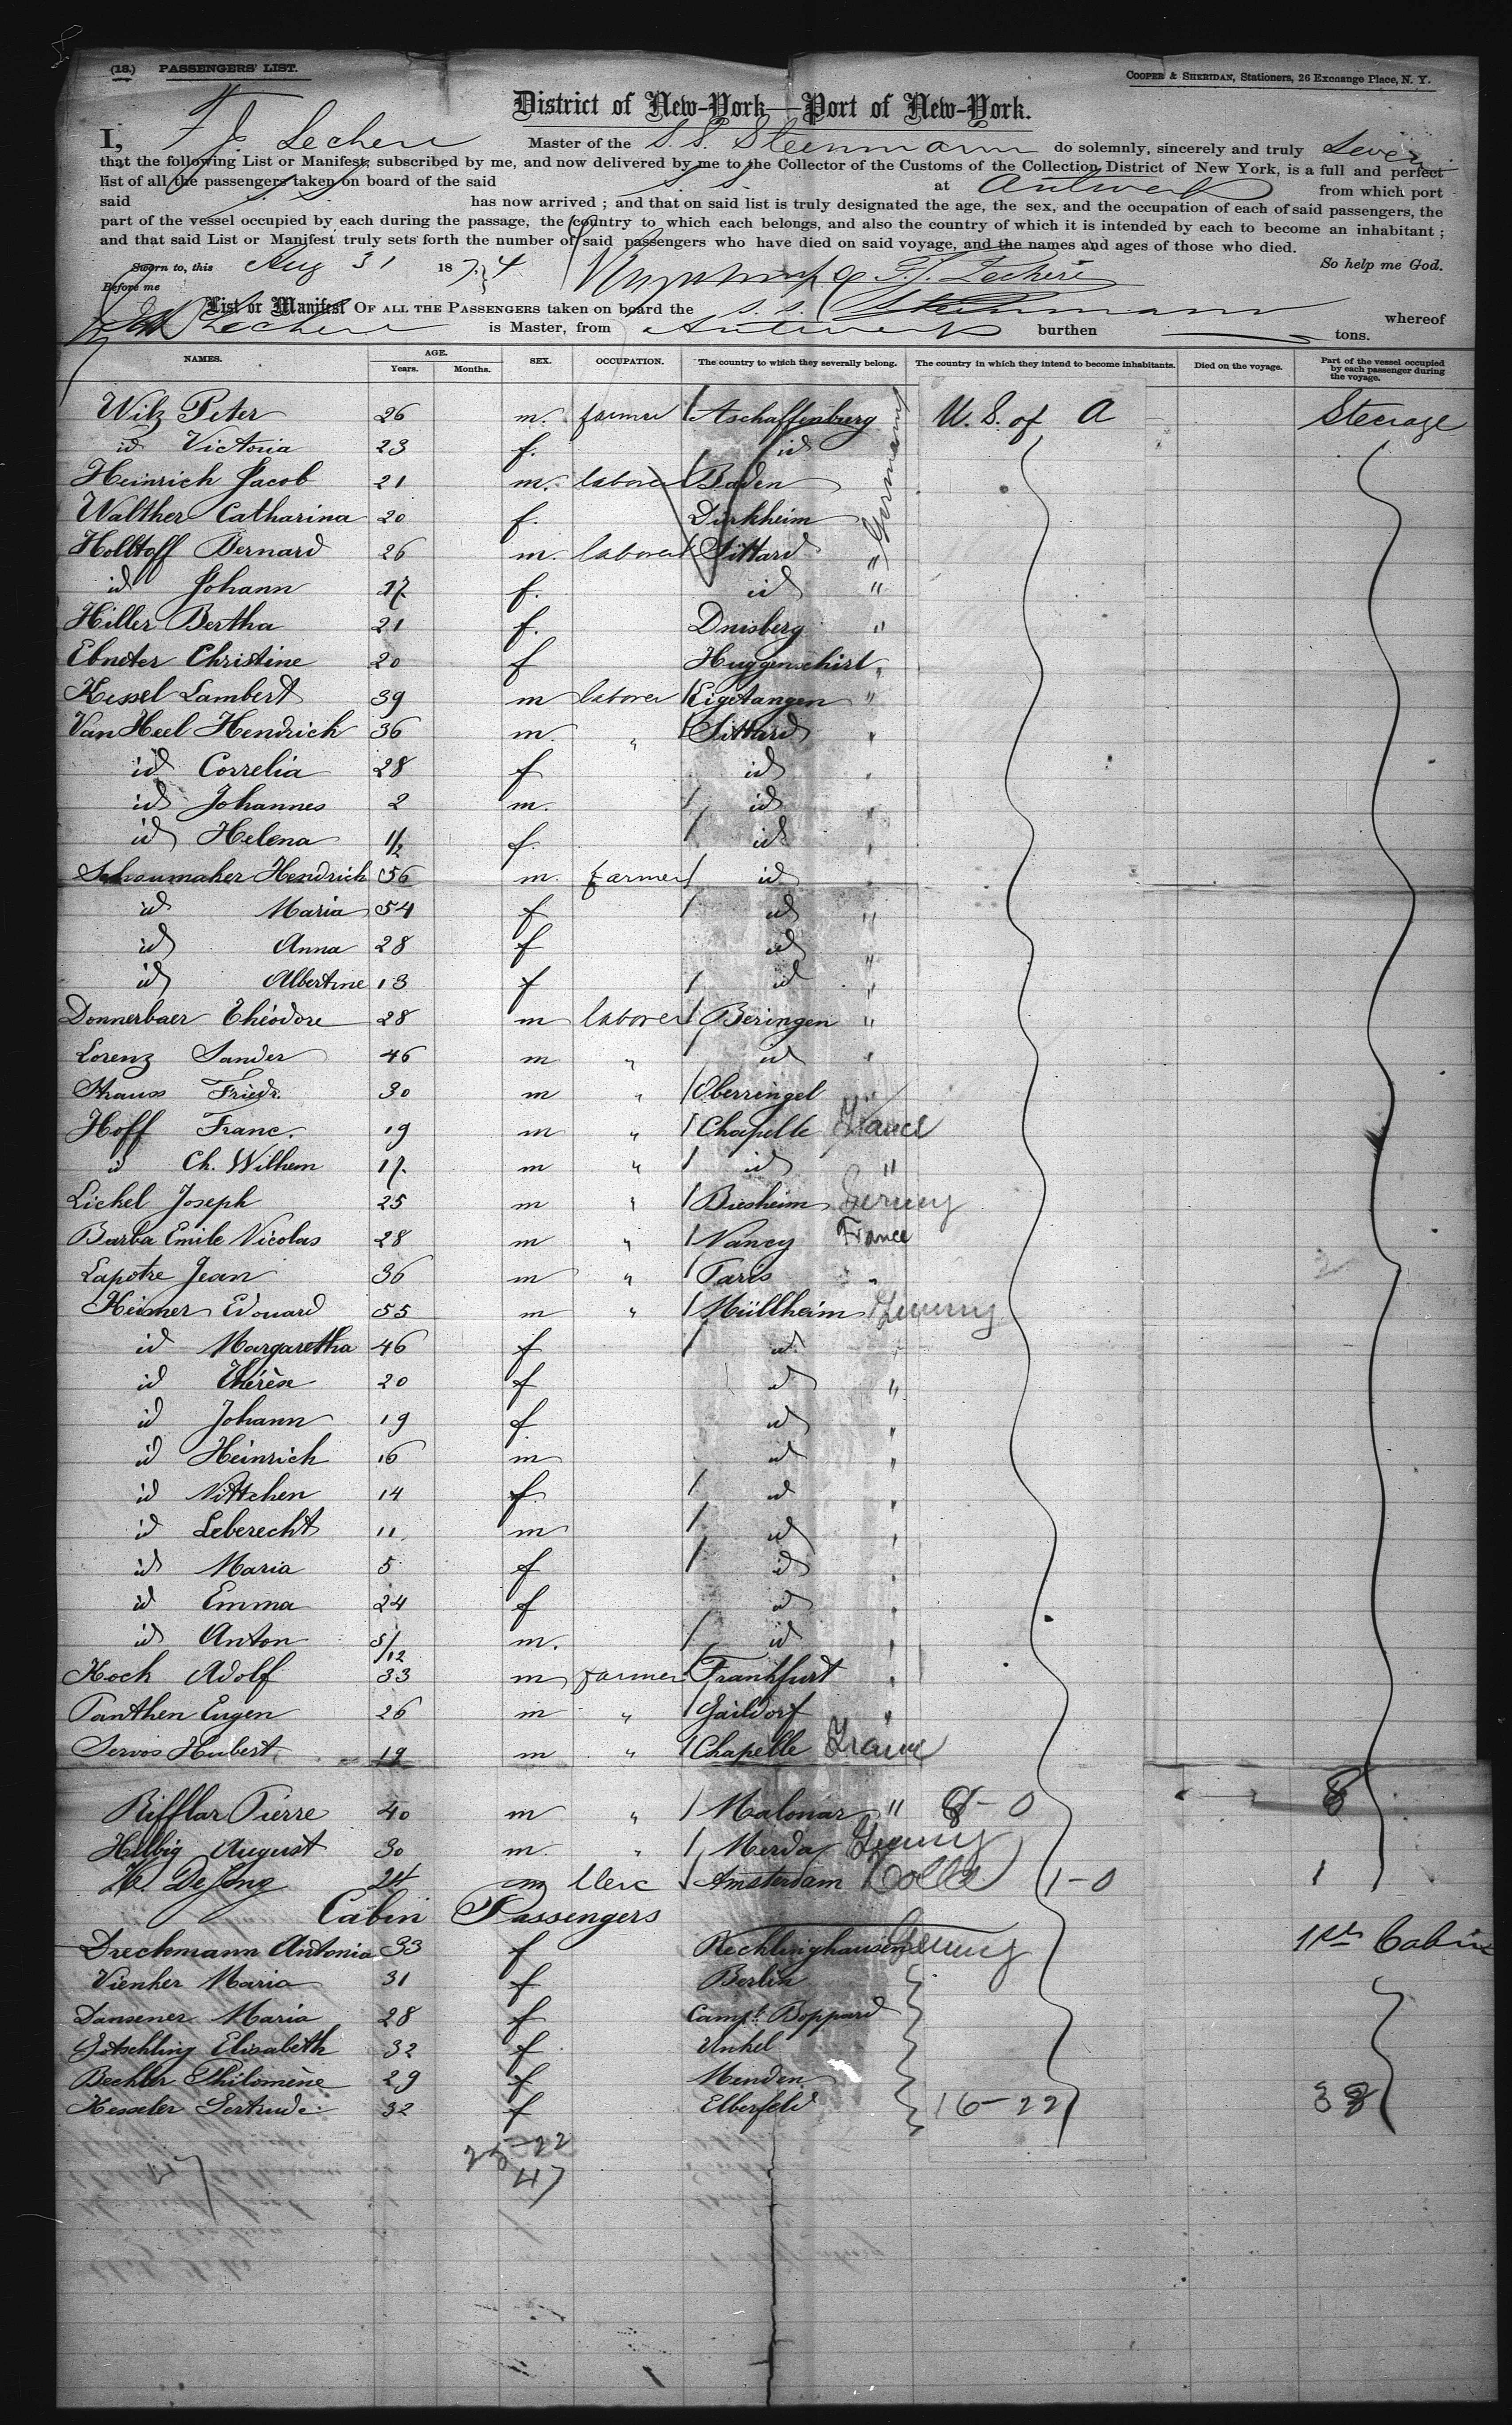 (18.) PASSENGERS' LIST.
COOPER & SHERIDAN, Stationers, 26 Exchange Place, N. Y.
District of New-York—Port of New-York.
I, F. J. Lechere Master of the S. S. Steinmann do solemnly, sincerely and truly Swear
that the following List or Manifest, subscribed by me, and now delivered by me to the Collector of the Customs of the Collection District of New York, is a full and perfect
list of all the passengers taken on board of the said S. S. at Antwerp from which port
said S. S. has now arrived ; and that on said list is truly designated the age, the sex, and the occupation of each of said passengers, the
part of the vessel occupied by each during the passage, the country to which each belongs, and also the country of which it is intended by each to become an inhabitant ;
and that said List or Manifest truly sets forth the number of said passengers who have died on said voyage, and the names and ages of those who died.
So help me God.
Sworn to, this Aug 31 1874 F. J. Lechere
Before me
List or Manifest OF ALL THE PASSENGERS taken on board the S. S. Steinmann whereof
Lechere is Master, from Antwerp burthen tons.
NAMES. AGE. Years. Months. SEX. OCCUPATION. The country to which they severally belong. The country in which they intend to become inhabitants. Died on the voyage. Part of the vessel occupied by each passenger during the voyage.
Wilz Peter 26 m. farmer Aschaffenberg Germany U. S. of A Steerage
id Victoria 23 f. id
Heinrich Jacob 21 m. laborer Baden
Walther Catharina 20 f. Dürkheim
Holttoff Bernard 26 m. laborer Sittard "
id Johann 17 f. id "
Hiller Bertha 21 f. Duisberg "
Ebneter Christine 20 f Huggenschirt "
Kessel Lambert 39 m laborer Eigetangen "
Van Heel Hendrich 36 m. " Sittard "
id Correlia 28 f id "
id Johannes 2 m. id "
id Helena 1/2 f. id "
Schoumaker Hendrich 56 m. farmer id "
id Maria 54 f id "
id Anna 28 f id "
id Albertine 13 f id "
Donnerbaer Théodore 28 m laborer Beringen "
Lorenz Sander 46 m " id "
Strauss Friedr. 30 m " Oberringel "
Hoff Franc. 19 m " Chapelle France
id Ch. Wilhem 17. m " id "
Lickel Joseph 25 m " Biesheim Germy
Barba Emile Nicolas 28 m " Nancy France
Lapotre Jean 36 m " Paris "
Heimer Edouard 55 m " Müllheim Germy
id Margaretha 46 f id "
id Thérèse 20 f id "
id Johann 19 f. id "
id Heinrich 16 m id "
id Nittchen 14 f. id "
id Leberecht 11 m id "
id Maria 5 f id "
id Emma 24 f id "
id Anton 5/12 m. id "
Koch Adolf 33 m farmer Frankfurt "
Panthen Eugen 26 m " Gaildorf "
Servos Hubert 19 m " Chapelle France
Rifflar Pierre 40 m " Malonar " 8-0 8
Helbig August 30 m. " Merda Germy
H. De Jong 24 m Clerc Amsterdam Holld 1-0 1
Cabin Passengers
Dreckmann Antonia 33 f Rechlinghausen Germy 1st Cabin
Vienker Maria 31 f Berlin
Dansener Maria 28 f Campt Boppard
Götschling Elisabeth 32 f Unkel
Bechler Philomène 29 f Menden
Kesseler Gertrude 32 f Elberfeld 16-22 38
25-22
47